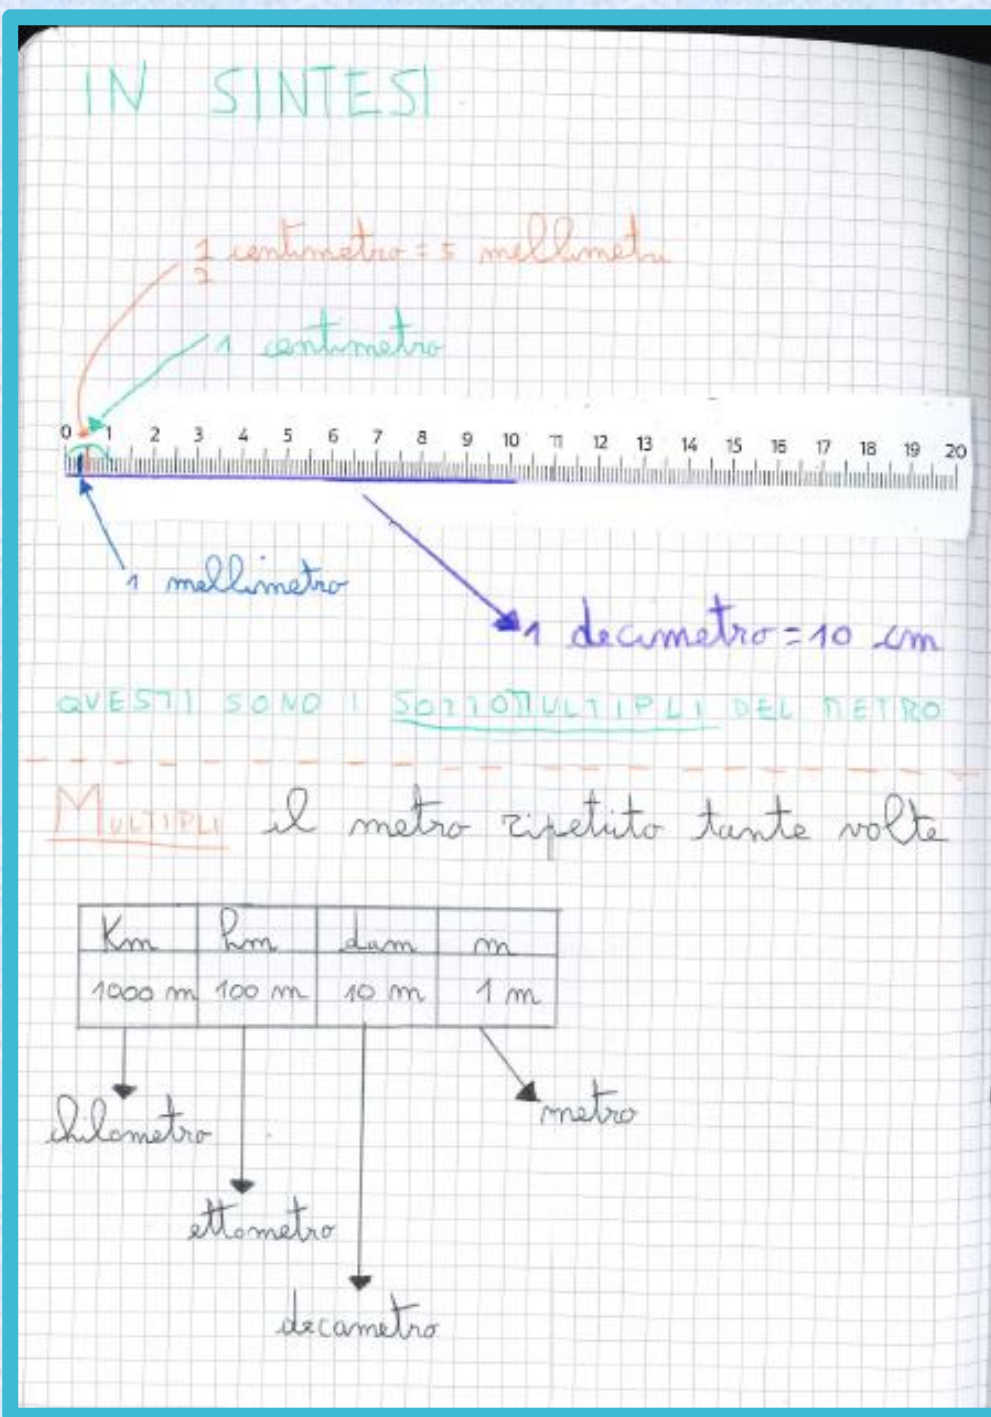 IN SINTESI
1/2 centimetro = 5 mellimetri
1 centimetro
0 1 2 3 4 5 6 7 8 9 10 11 12 13 14 15 16 17 18 19 20
1 mellimetro
1 decimetro = 10 cm
QUESTI SONO I SOTTOMULTIPLI DEL METRO
MULTIPLI il metro ripetuto tante volte
Km hm dam m
1000 m 100 m 10 m 1 m
chilometro
metro
ettometro
decametro